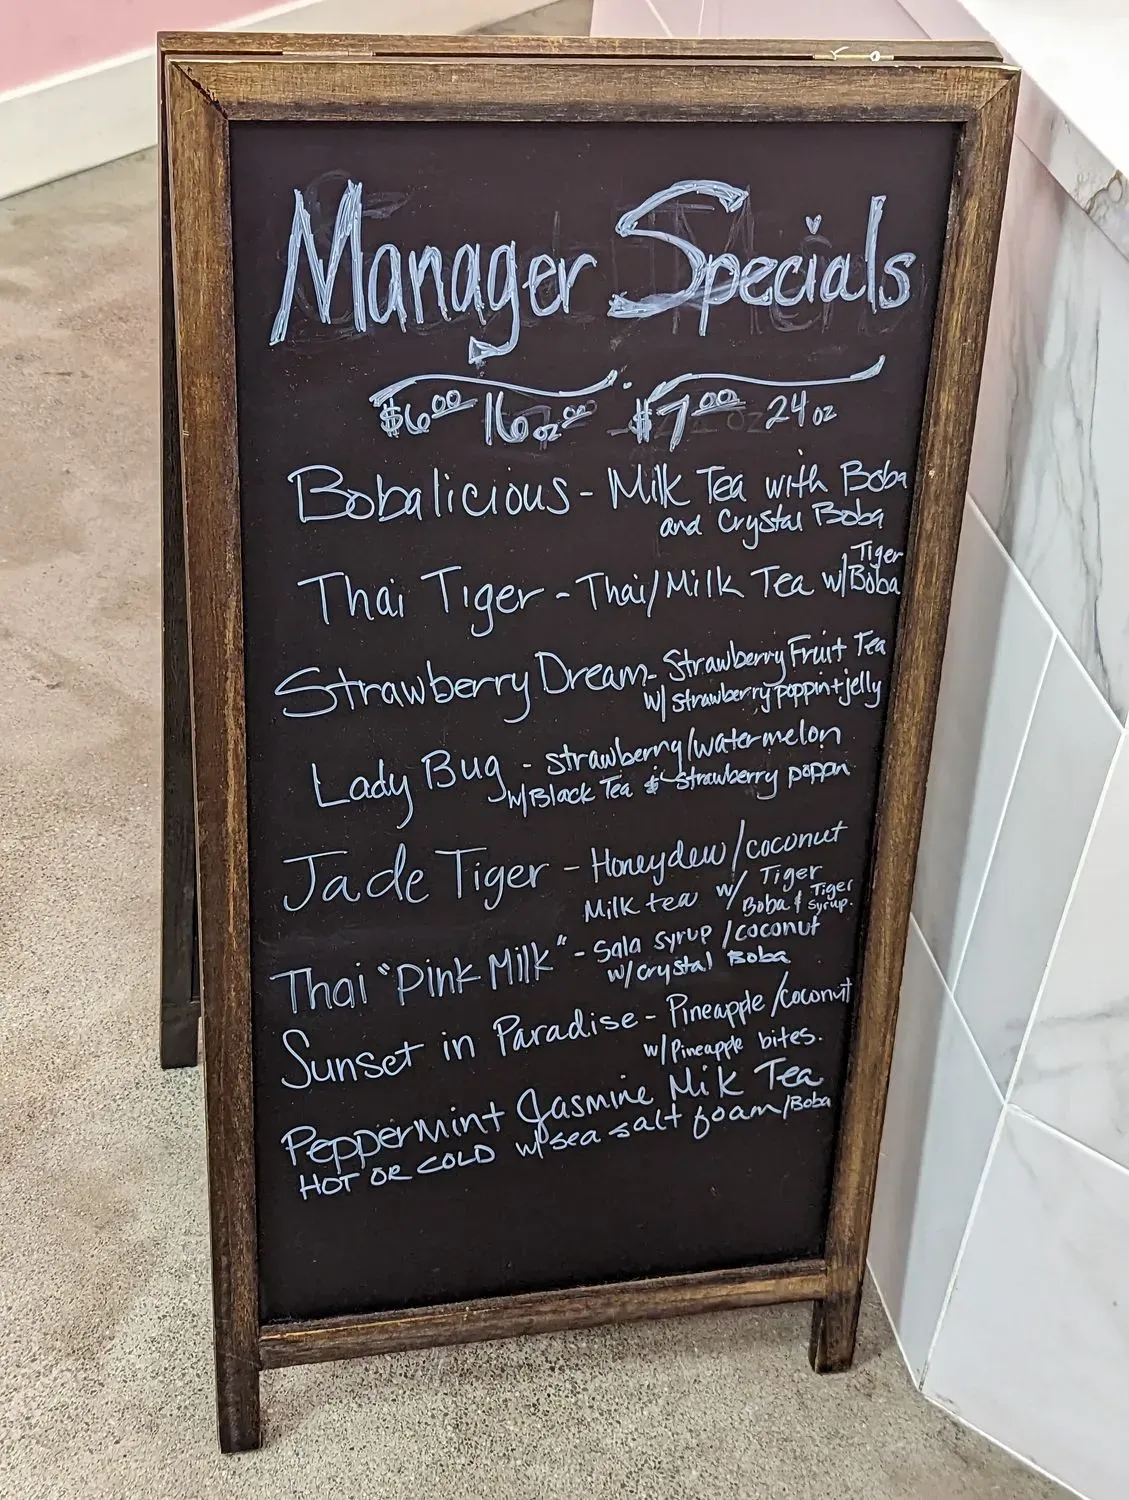 Manager Specials
$6.00 16oz $7.00 24oz
Bobalicious - Milk Tea with Boba
and Crystal Boba
Thai Tiger - Thai/Milk Tea w/ Tiger Boba
Strawberry Dream - Strawberry Fruit Tea
w/ strawberry poppin + jelly
Lady Bug - strawberry/watermelon
w/Black Tea & strawberry poppin
Jade Tiger - Honeydew/coconut
Milk tea w/ Tiger Boba & Tiger Syrup.
Thai "Pink Milk" - Sala syrup/coconut
w/crystal Boba
Sunset in Paradise - Pineapple/coconut
w/Pineapple bites.
Peppermint Jasmine Milk Tea
HOT OR COLD w/ sea salt foam/Boba